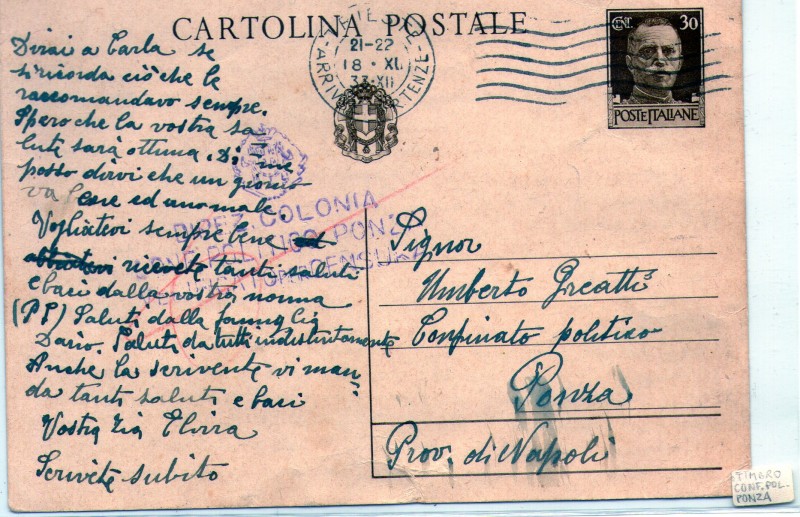 CARTOLINA POSTALE
CENT. 30
POSTE ITALIANE
21-22
18 · XI
33·XII
ARRIVI PARTENZE
Dirai a Carla se
si ricorda ciò che le
raccomandavo sempre.
Spero che la vostra sa
lute sarà ottima. Di me
posso dirvi che un giorno
va bene ed uno male.
Vogliatevi sempre bene
ricevete tanti saluti
e baci dalla vostra nonna
(PP) Saluti dalla famiglia
Dario. Saluti da tutti indistintamente
Anche la scrivente vi man
da tanti saluti e baci
Vostra zia Elvira
Scrivete subito
DIREZ. COLONIA
CONF. POLITICO PONZA
CENSURA
Signor
Umberto
Confinato politico
Ponza
Prov. di Napoli
TIMBRO
CONF. POL.
PONZA